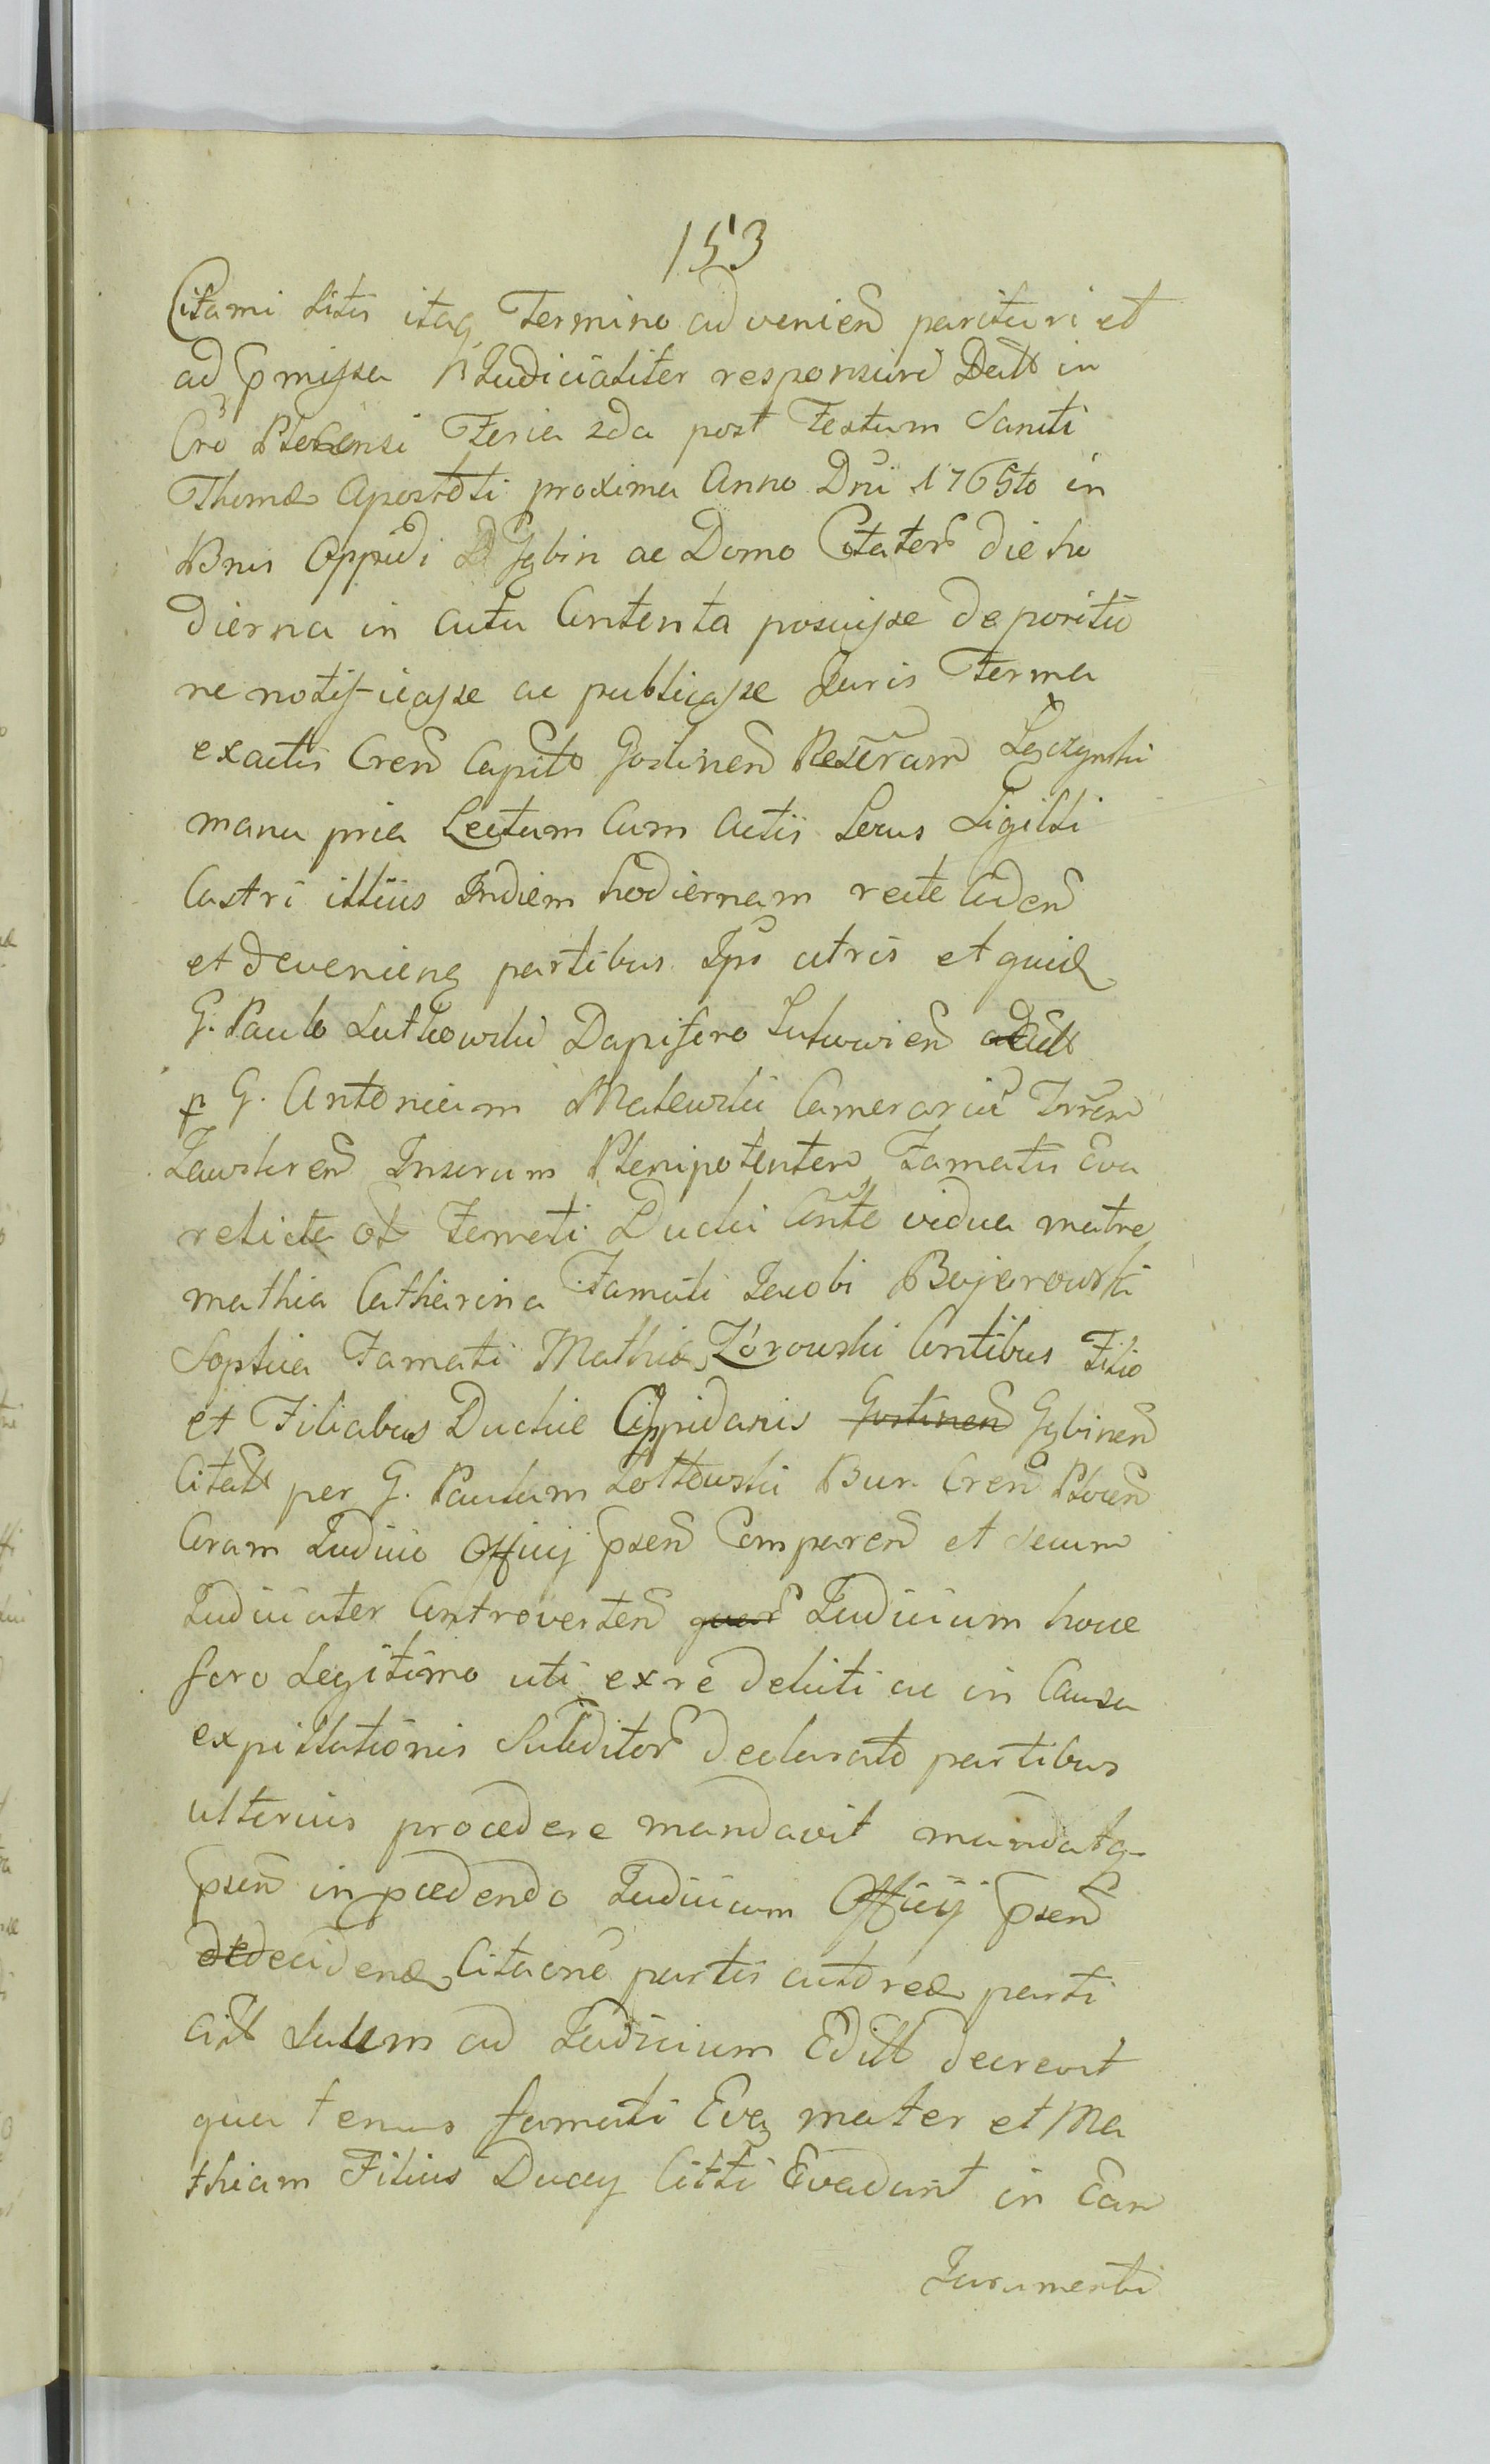 153
Citami Litis itaq Termino advenien parituri et
ad pmissa Judicialiter responsuri Datt in
Cro Plocensi Feria 2da post Festum Sancti
Thomæ Apostoli proxima Anno Dni 1765to in
Bnis Oppidi Gąbin ac Domo Citator die ho
dierna in actu Contenta posuisse depositio
ne notificasse ac publicasse Juris Forma
exactis Cren Capit Gostinen Łączynski
manu pria Lectum Cum Actis Locus Sigilli
Castri illius Indiem hodiernam recte Caden
et devenienq partibus Ips actris et quid
G. Paulo Lutkowski Dapifero
p G. Antonium Malewski Camerariu Trren
Inscrum Plenipotenten Famatis Eva
relicta ol Famati Ducki Conte vidua matre
mathia Catharina Famati Jacobi Bojarowski
Sophia Famati Mathiæ Żórowski Contibus Filio
et Filiabus Duckie Oppidanis Gostinen Gąbinen
Citatt per G. Paulum Zołtowski Bur. Cren Plocen
Coram Judicio Officij psen Comparen et secum
Judicialter Controverten quar Judicium hocce
foro Legitimo uti ex re delicti ac in Causa
expillationis Subditor declarato partibus
ulterius procedere mandavit mandatq
psen in pcedendo Judicium Officij psen
de decidend Citaone partis actoreæ parti
Citt Salum ad Judicium Editt decrevit
qua tenus famati Eva mater et Ma
thiam Filius Ducey Citti Evadant in Ean
Juramenti